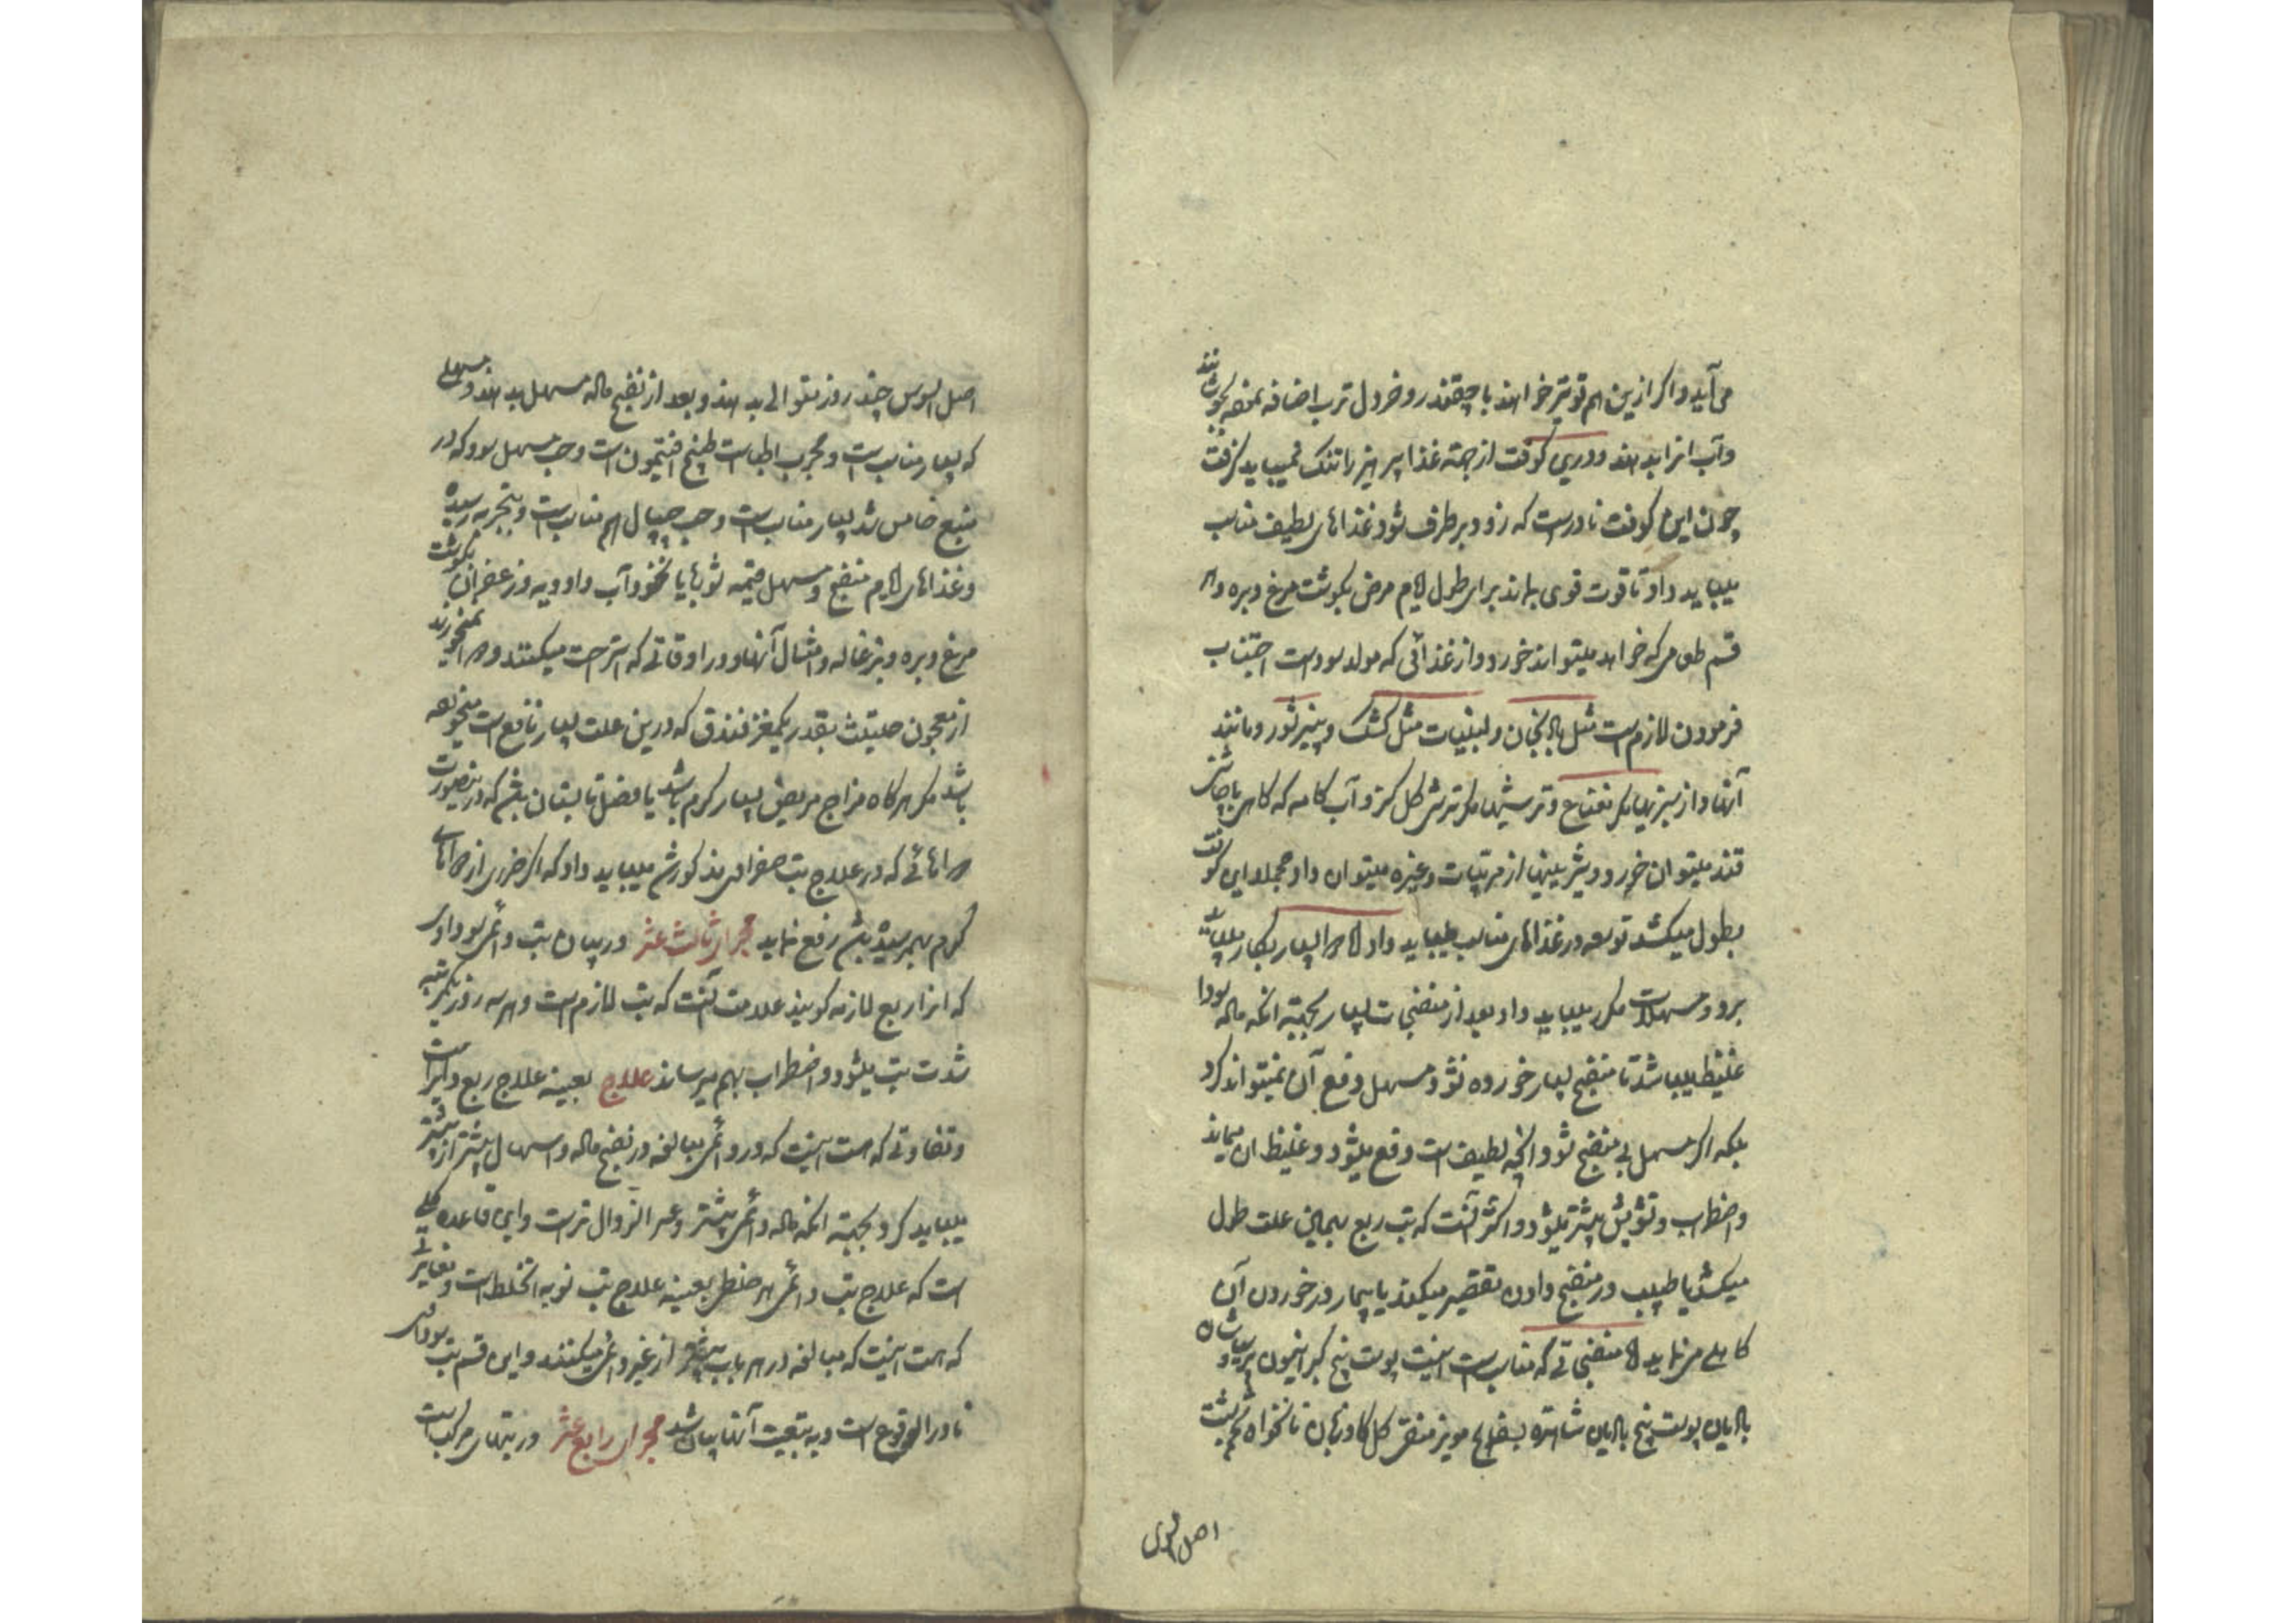 می‌آید و اگر ازین هم قویتر خواهند با چقندر و خردل ترب اضافه نموده بجوشانند
و آب انرا بدهند و درین کوفت از جهته غذا پرهیز را تنک نمیباید گرفت
چون این کوفت نادرست که زود برطرف شود غذاهای لطیف مناسب
میباید داد تا قوت قوی بماند برای طول ایام مرض بگوشت مرغ و بره و هر
قسم طعامی که خواهد میتواند خورد و از غذائی که مولد سوداست اجتناب
فرمودن لازم است مثل بادنجان و لبنیات مثل کشک و پنیر شور و مانند
آنها و از سبزیها مگر نعناع و ترشیها مگر ترشی گل کبر و آب کامه که گاهی با چاشنی
قند میتوان خورد و شیرینیها از مربیات و غیره میتوان داد مجملا این کوفت
بطول میکشد توسعه در غذاهای مناسب میباید داد اما بسیار بکار میباید
برد و مسهلات مکرر میباید داد بعد از منضجات بسیار بجهته انکه ماده سودا
غلیظ میباشد تا منضج بسیار خورده نشود مسهل دفع آن نمیتواند کرد
بلکه اگر مسهل بی منضج شود انچه لطیف است دفع میشود و غلیظ ان میماند
و اضطراب و تشویش بیشتر میشود و اکثر آنست که تب ربع بهمین علت طول
میکشد یا طبیب در منضج دادن تقصیر میکند یا بیمار در خوردن آن
کاهلی مینماید اما منضجاتی که مناسب است اینست پوست بیخ کبر انیسون پرسیاوشان
بادیان پوست بیخ بادیان شاهتره بسفایج مویز منقی گل گاوزبان نانخواه تخم شبت
اصل السوس
اصل السوس چند روز متوالی بدهند و بعد از نضج ماده مسهل بدهند و مسهلی
که بسیار مناسب است و مجرب اطباست طبیخ افتیمون است و حب مسهل سودا که در
منبع خامس شد بسیار مناسب است و حب چیپال هم مناسب است و بتجربه رسیده
و غذاهای ایام منضج و مسهل قیمه شوربا با نخود آب و ادویه و زعفران بگوشت
مرغ و بره و بزغاله و امثال آنها و در اوقاتی که استراحت میکنند و دوا نمیخورند
از معجون حلتیت بقدر یکمغز فندق که درین علت بسیار نافع است میخورده
باشد مگر هرگاه مزاج مریض بسیار گرم باشد یا فصل تابستان باشد که درینصورت
دواهائی که در علاج تب صفراوی مذکور شد میباید داد که اگر ضرری از دواهای
گرم بهمرسیده باشد رفع نماید مجرای ثالث عشر در بیان تب دائمی سوداوی
که انرا ربع لازمه گویند علامت آنست که تب لازم است و هر سه روز یکمرتبه
شدت تب میشود و اضطراب بهم میرساند علاج بعینه علاج ربع دائر است
و تفاوتی که هست اینست که در دائمی مبالغه در نضج ماده و اسهال بیشتر از نوبتی
میباید کرد بجهته انکه ماده دائمی بیشتر و عسر الزوال ترست و این قاعده کلی
است که علاج تب دائمی هر خلطی بعینه علاج تب نوبه انخلط است و تفاوتی
که هست اینست که مبالغه در هر باب بیشتر از غیر دائمی میکنند و این قسم تب سوداوی
نادر الوقوع است و به تبعیت آنها بیان شد مجرای رابع عشر در تبهای مرکب است